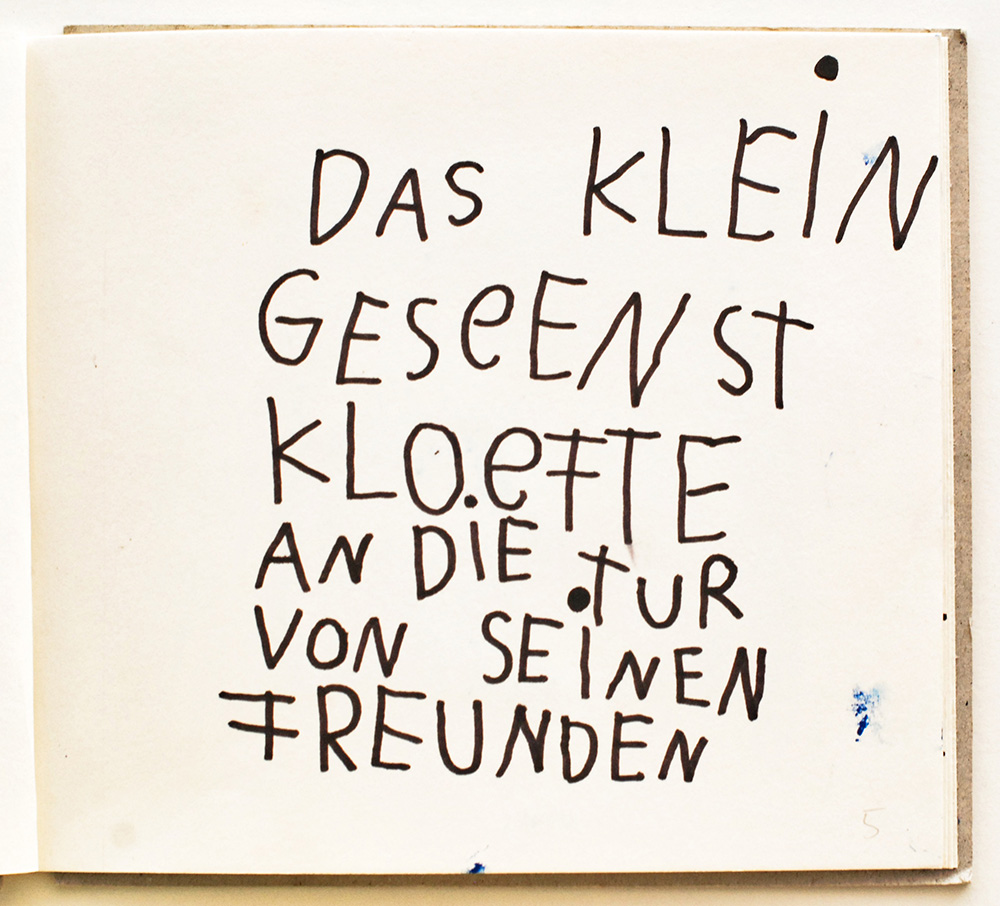 DAS KLEiN
GESeENST
KLOeFTE
AN DiE TUR
VON SEiNEN
FREUNDEN
5